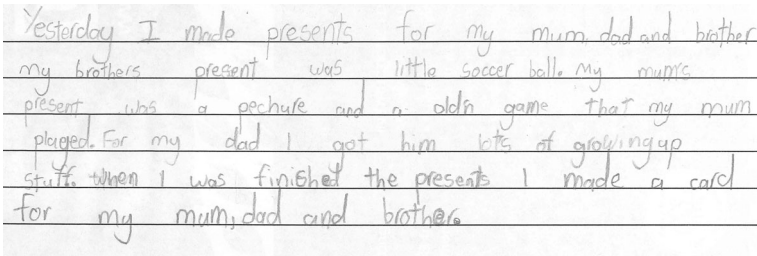 Yesterday I made presents for my mum, dad and brother
my brothers present was little soccer ball. My mum's
present was a pechure and a oldn game that my mum
played. For my dad I got him lots of growing up
stuff. when I was finished the presents I made a card
for my mum, dad and brother.